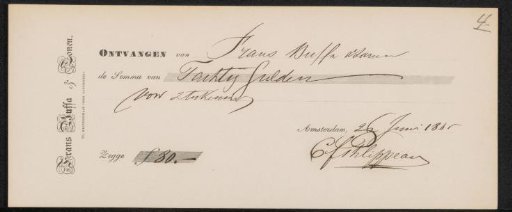 4
Frans Buffa & Zonen.
ONTVANGEN van Frans Buffa & Zonen
de Somma van Tachtig Gulden
voor 2 tekeningen
Amsterdam, 26 Juni 18
Zegge ƒ 80.—